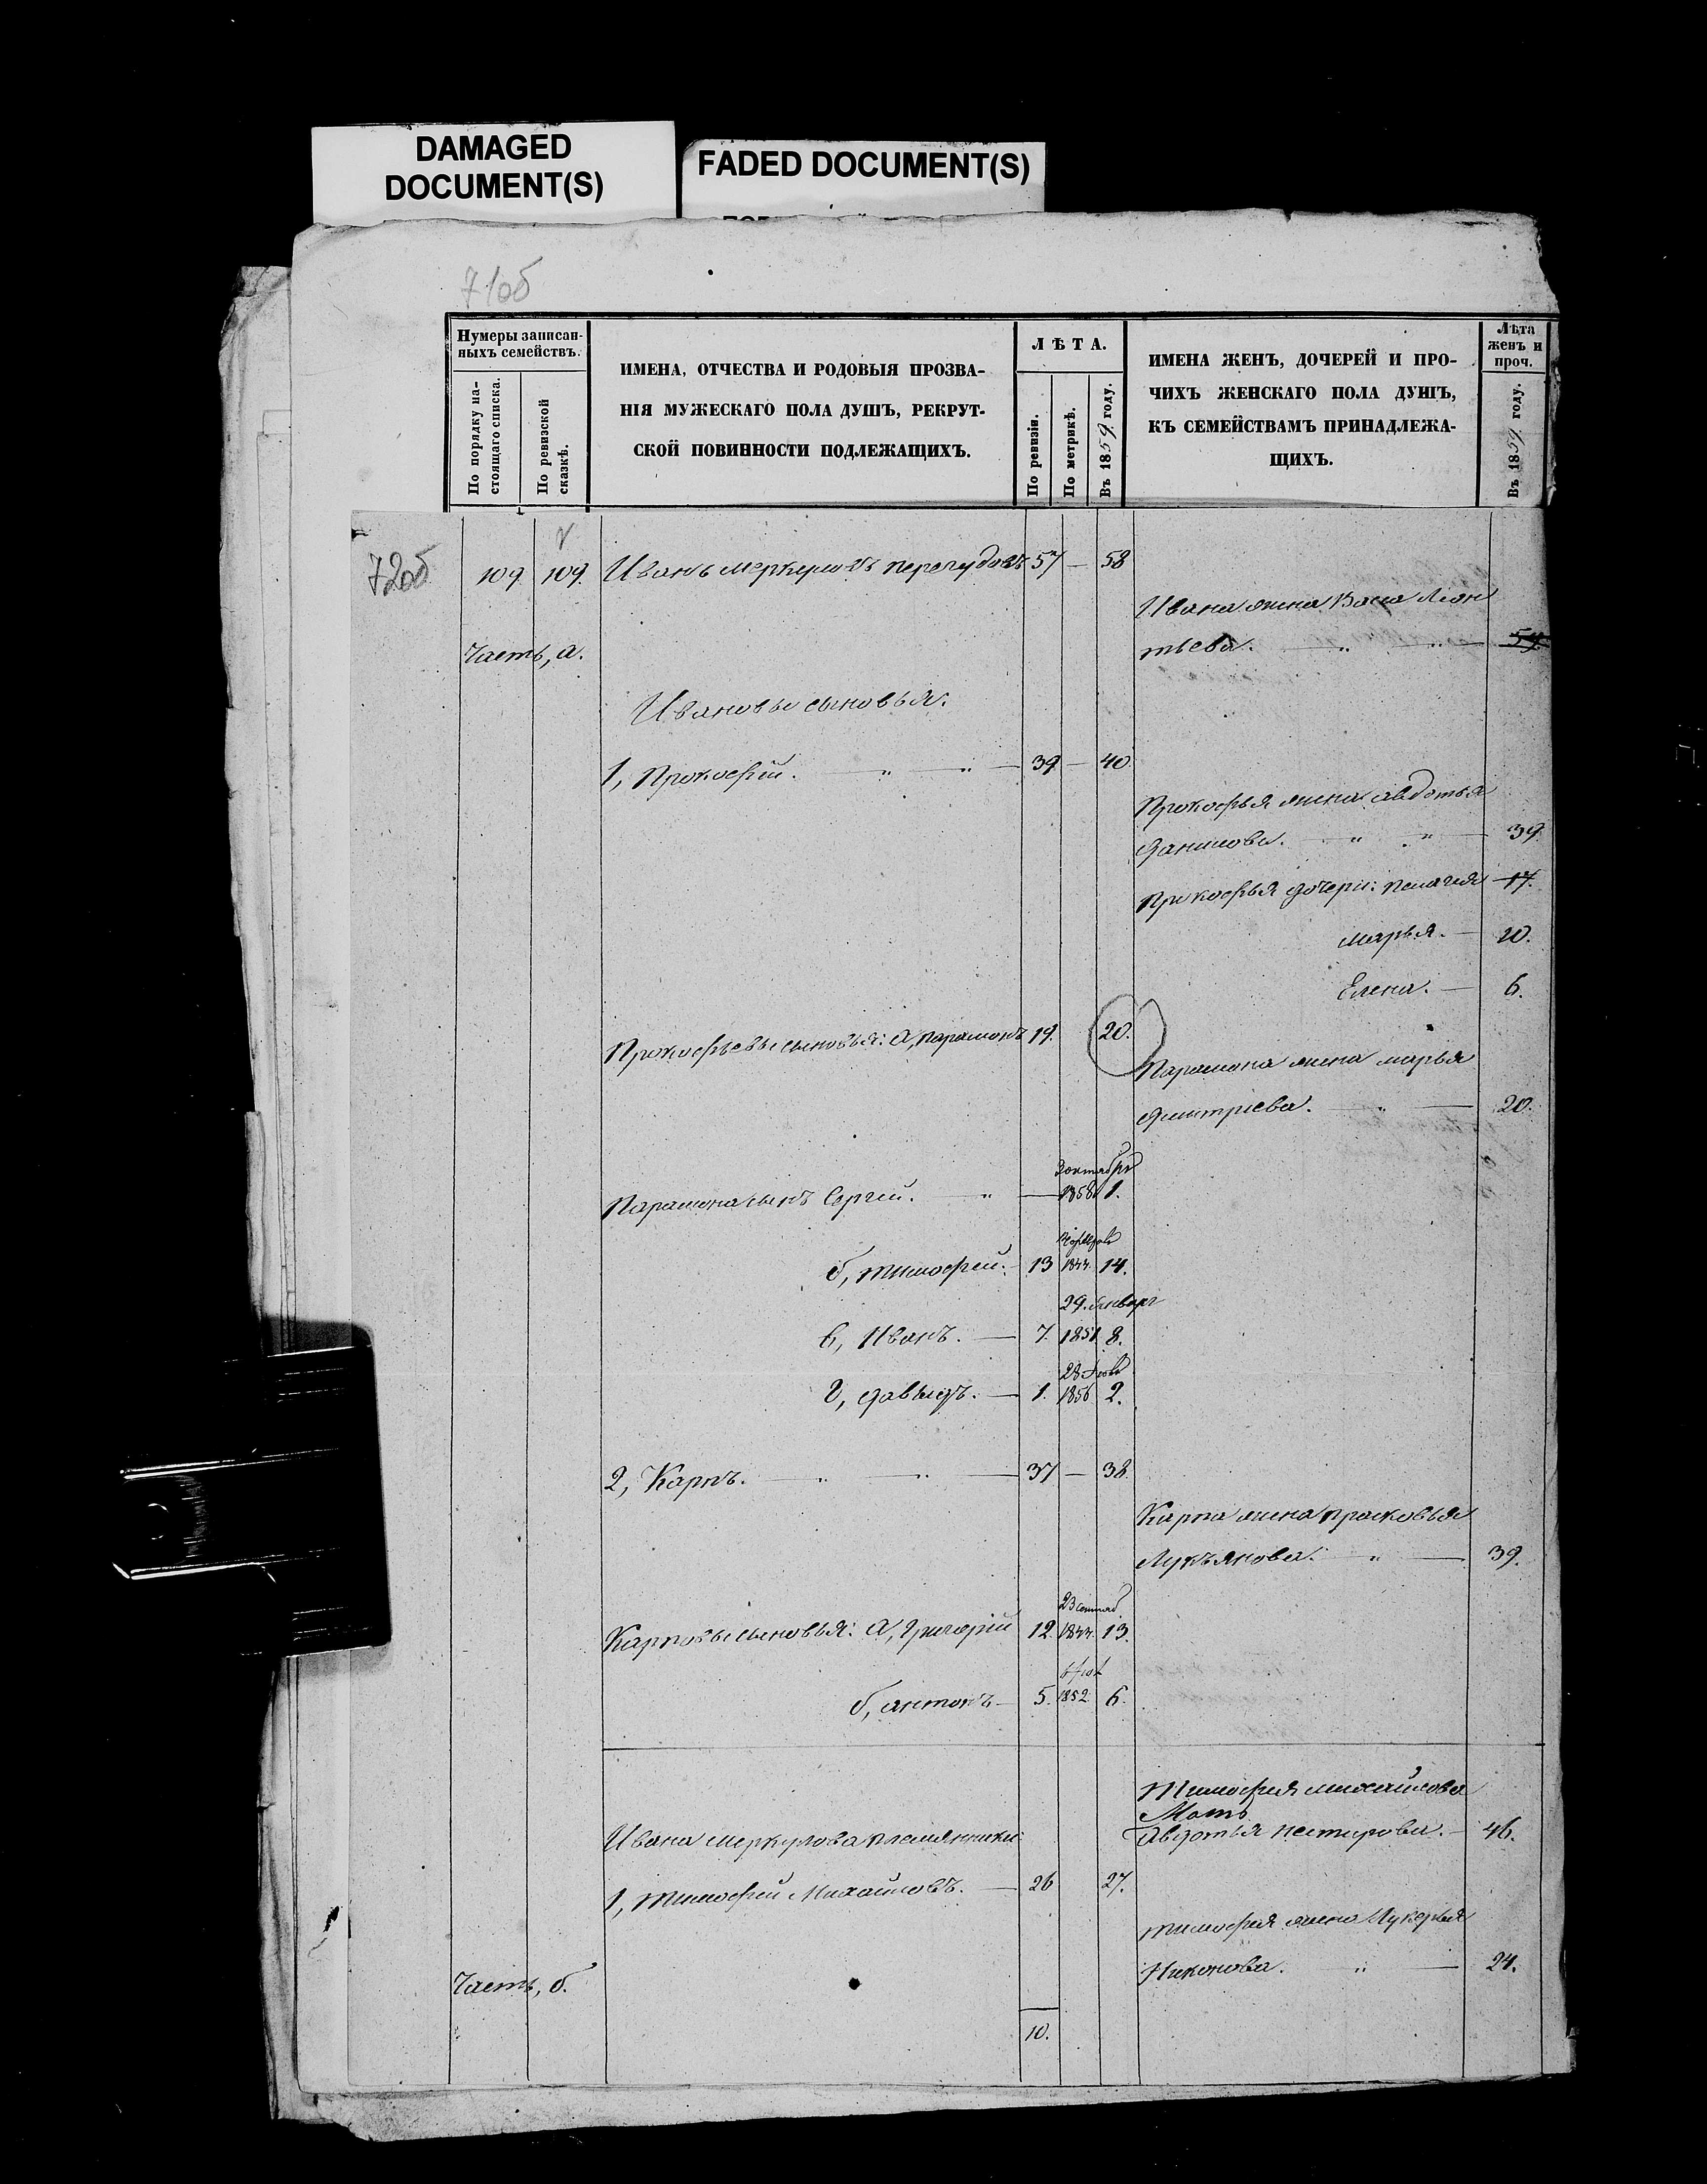 DAMAGED
DOCUMENT(S)
FADED DOCUMENT(S)
71об
Нумеры записан-
ныхъ семействъ.
По порядку на-
стоящаго списка.
По ревизской
сказкѣ.
ИМЕНА, ОТЧЕСТВА И РОДОВЫЯ ПРОЗВА-
НІЯ МУЖЕСКАГО ПОЛА ДУШЪ, РЕКРУТ-
СКОЙ ПОВИННОСТИ ПОДЛЕЖАЩИХЪ.
ЛѢТА.
По ревизіи.
По метрикѣ.
Въ 1859 году.
ИМЕНА ЖЕНЪ, ДОЧЕРЕЙ И ПРО-
ЧИХЪ ЖЕНСКАГО ПОЛА ДУШЪ,
КЪ СЕМЕЙСТВАМЪ ПРИНАДЛЕЖА-
ЩИХЪ.
Лѣта
женъ и
проч.
Въ 1859 году.
72об
109 109. Иванъ Меркуловъ Перегудовъ 57 — 58
Ивана жена Васа Леон
тьева. " " —
Часть, а.
Ивановы сыновья:
1, Прокофій. — " — " — 39 — 40.
Прокофья жена Авдотья
Данилова. — " " — 39.
Прокофья дочери: Пелагея 17.
Марья. — 10.
Елена. — 6.
Прокофьевы сыновья: а, Парамонъ 19. 20.
Парамона жена Марья
Дмитріева. — " — 20.
Парамона сынъ Сергей. " — октября 1858 1.
б, Тимофей. — 13 1844. 14.
29. Январ
в, Иванъ. — 7. 1851 8.
г, Давыдъ. — 1. 1856 2.
2, Карпъ. — " — " — 37 — 38.
Карпа жена Прасковья
Лукъянова. " — 39.
23 сентяб.
Карповы сыновья: а, Григорій 12. 1844. 13.
б, Антонъ — 5. 1852. 6.
Тимофея Михайлова
Мать
Авдотья Нестерова. — 46.
Ивана Меркулова племянники:
1, Тимофей Михайловъ. — 26 27.
Тимофея жена Лукерья
Никонова. " — 24.
Часть, б.
10.